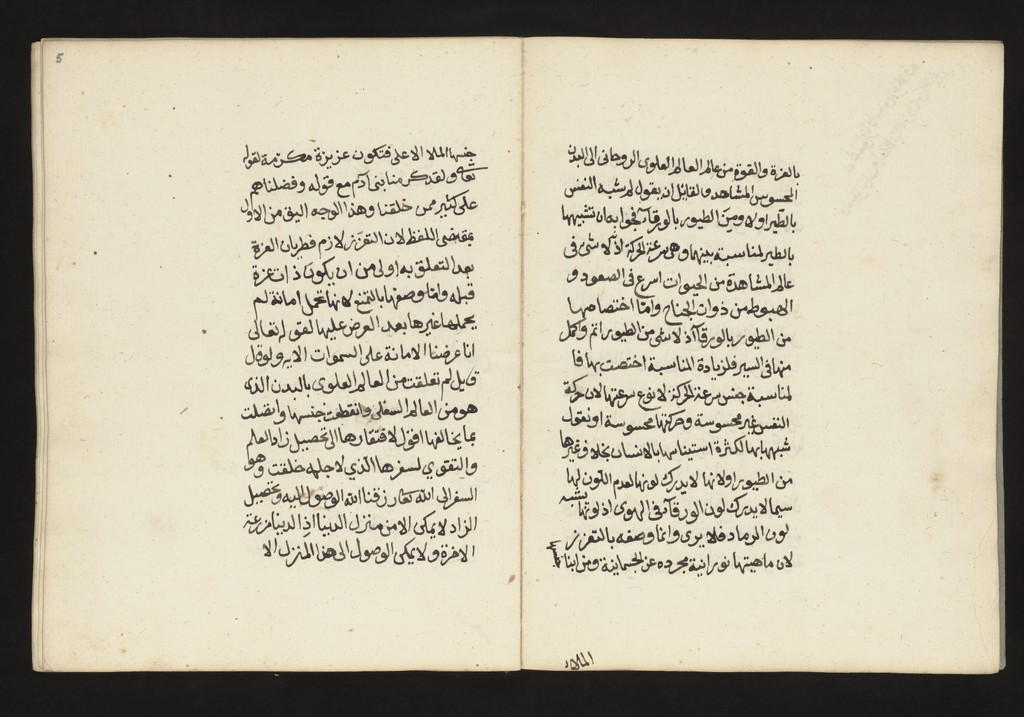 بالعزة والقوة من عالم العالم العلوى الروحانى الى البدن
المحسوس المشاهد ولقائل ان يقول لم شبه النفس
بالطير اولا ومن الطيور بالورقآء فجوابه ان تشبيهها
بالطير لمناسبة بينهما وهى سرعة الحركة اذ لا شئ فى
عالم المشاهدة من الحيوات اسرع فى الصعود و
الهبوط من ذوات الجناح واما اختصاصها
من الطيور بالورقآء اذ لا شئ من الطيور اتم واكمل
منها فى السير فلزيادة المناسبة اختصت بها فا
لمناسبة جنس سرعة الحركة لا نوع سرعتها لان حركة
النفس غير محسوسة وحركتها محسوسة او نقول
شبهها بها لكثرة استيناسها بالانسان بخلاف غيرها
من الطيور او لانها لا يدرك لونها لعدم اللون لها
سيما لا يدرك لون الورقآء فى الهوى اذ لونها يشبه
لون الرماد فلا يرى وانما وصفه بالتعزز
لان ماهيتها نورانية مجرده عن الجسمانية ومن ابنا
الملاء
5
جنسها الملا الاعلى فتكون عزيزة مكرمة لقوله
تعالى ولقد كرمنا بنى آدم مع قوله وفضلناهم
على كثير ممن خلقنا وهذا الوجه اليق من الاول
بمقتضى اللفظ لان التعزز لازم فطريان العزة
بعد التعلق به اولى من ان يكون ذات عزة
قبله وانما وصفها بالتمنع لانها تحمل امانة لم
يحملها غيرها بعد العرض عليها لقوله تعالى
انا عرضنا الامانة على السموات الاية ولو قال
قايل لم تعلقت من العالم العلوى بالبدن الذى
هو من العالم السفلى وانقطعت جنسها واتصلت
بما يخالفها اقول لافتقارها الى تحصيل زاد العلم
والتقوي لسفرها الذي لاجله خلقت وهو
السفر الى الله تعالى رزقنا الله الوصول اليه وتحصيل
الزاد لا يمكن الا من منزل الدنيا اذ الدنيا مزرعة
الاخرة ولا يمكن الوصول الى هذا المنزل الا